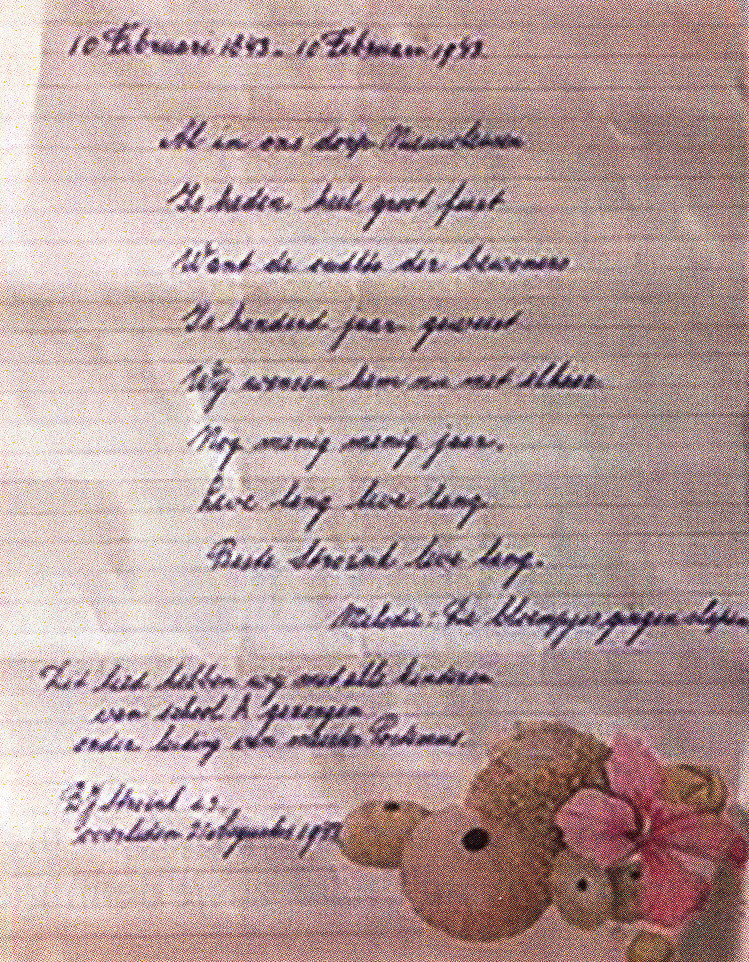 10 Februari 1843 - 10 Februari 1943
Al in ons dorp Nieuwleusen
Is heden heel groot feest
Want de oudste der bewoners
Is honderd jaar geweest
Wij wensen hem nu met elkaar
Nog menig menig jaar.
Leve lang leve lang
Beste Stroink leve lang.
Melodie: De bloempjes gingen slapen
Dit lied hebben wij met alle kinderen
van school A gezongen
onder leiding van meester
Stroink is
overleden 2 Augustus